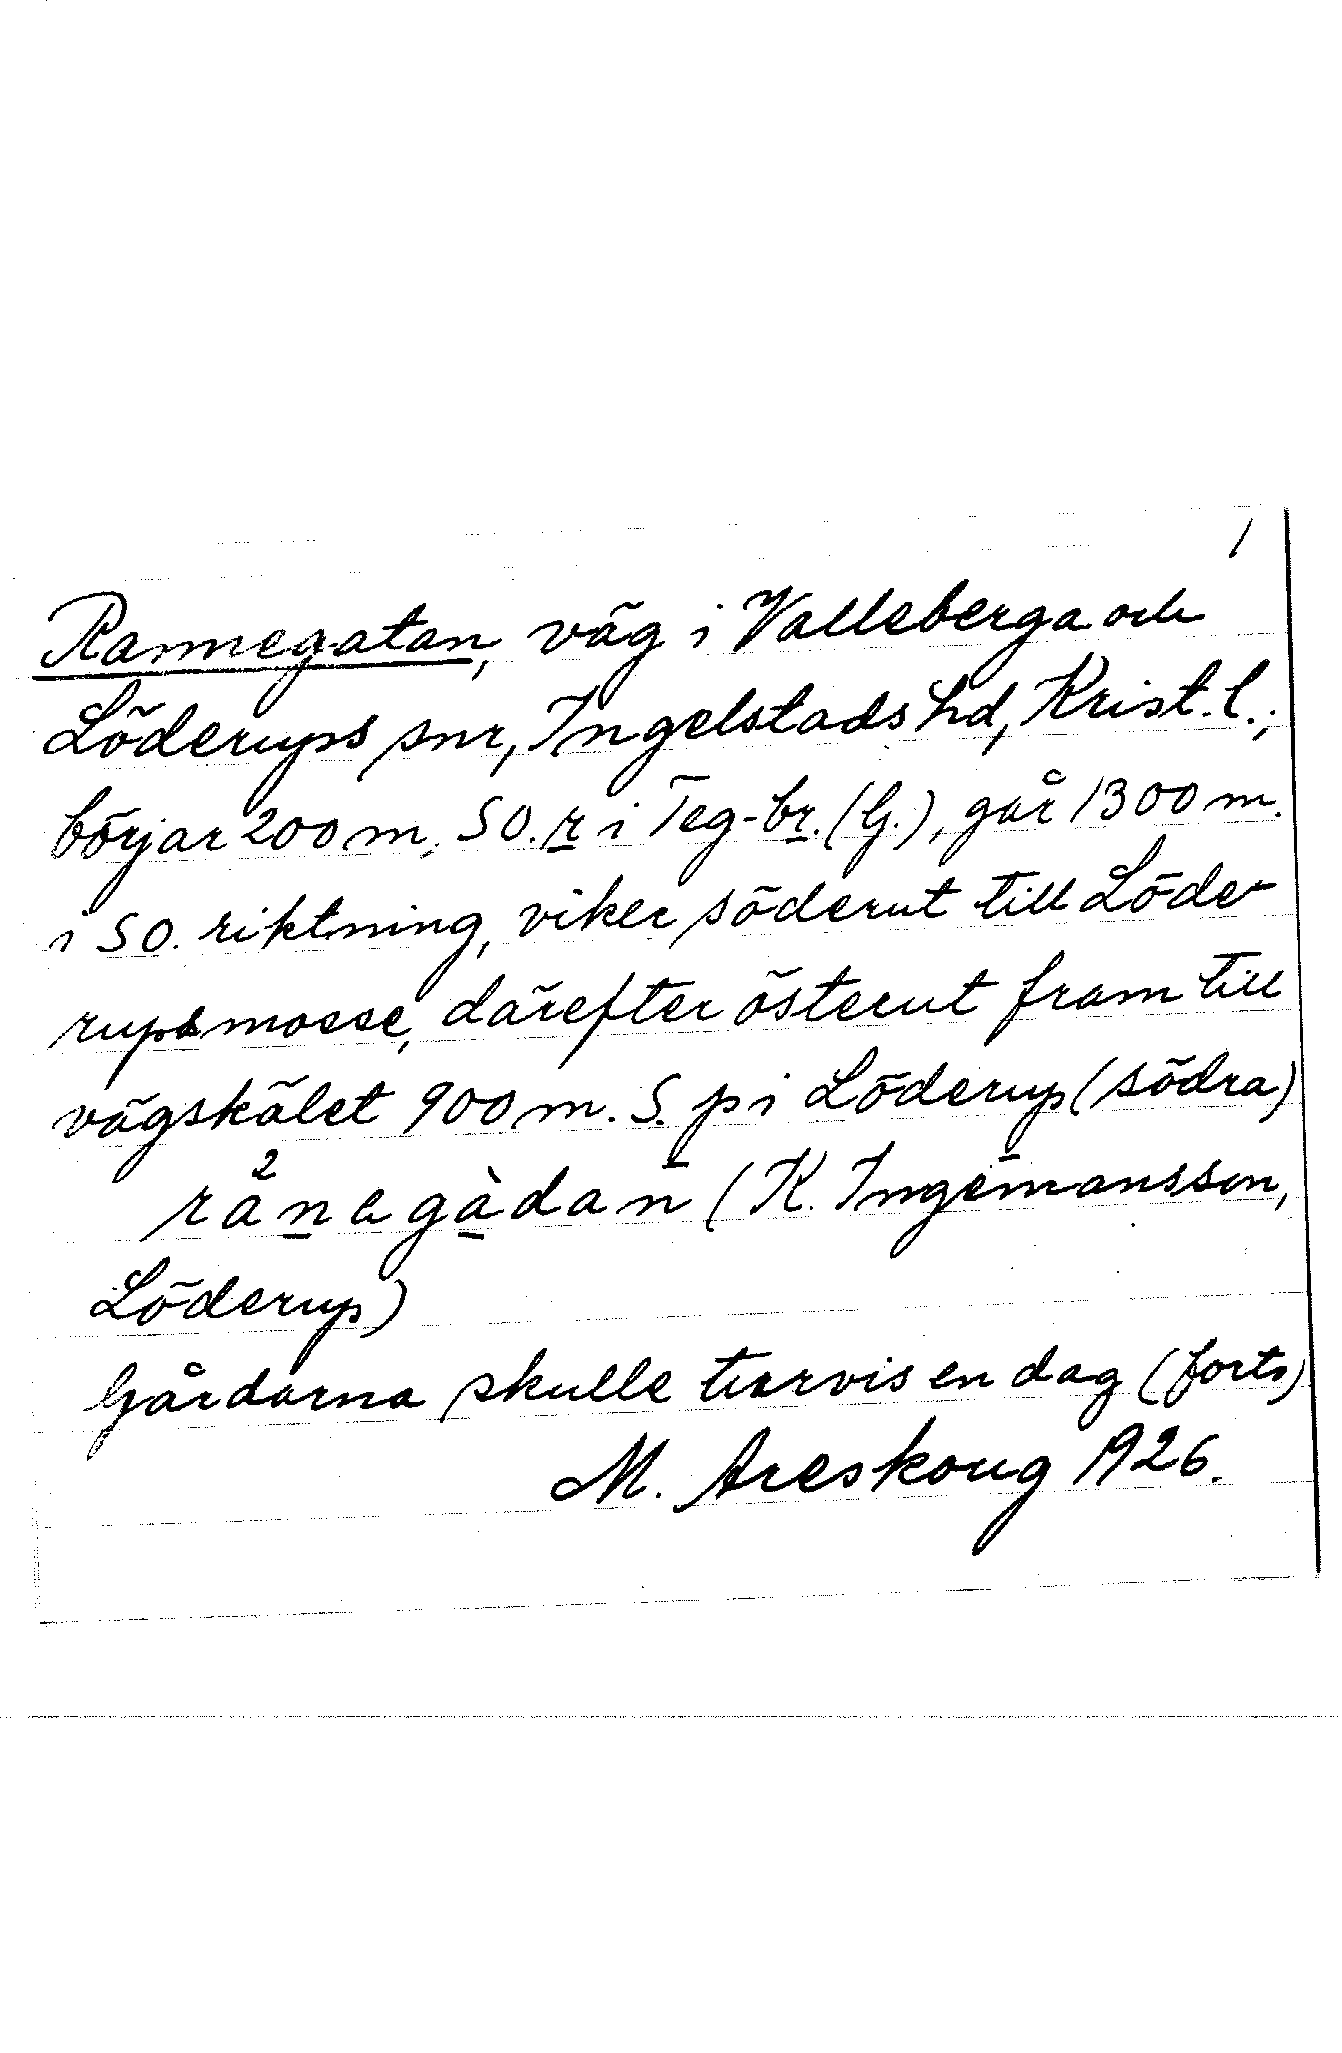 1
Rannegatan, väg i Valleberga och
Löderups snr, Ingelstads hd, Krist. l.;
börjar 200 m. SO. r i Teg-br. (G.), går 1300 m.
i SO. riktning, viker söderut till Löde-
rups mosse, därefter österut fram till
vägskälet 900 m. S. p i Löderup (södra)
rånagàdan (K. Ingemansson,
Löderup)
Gårdarna skulle turvis en dag (forts)
M. Areskoug 1926.